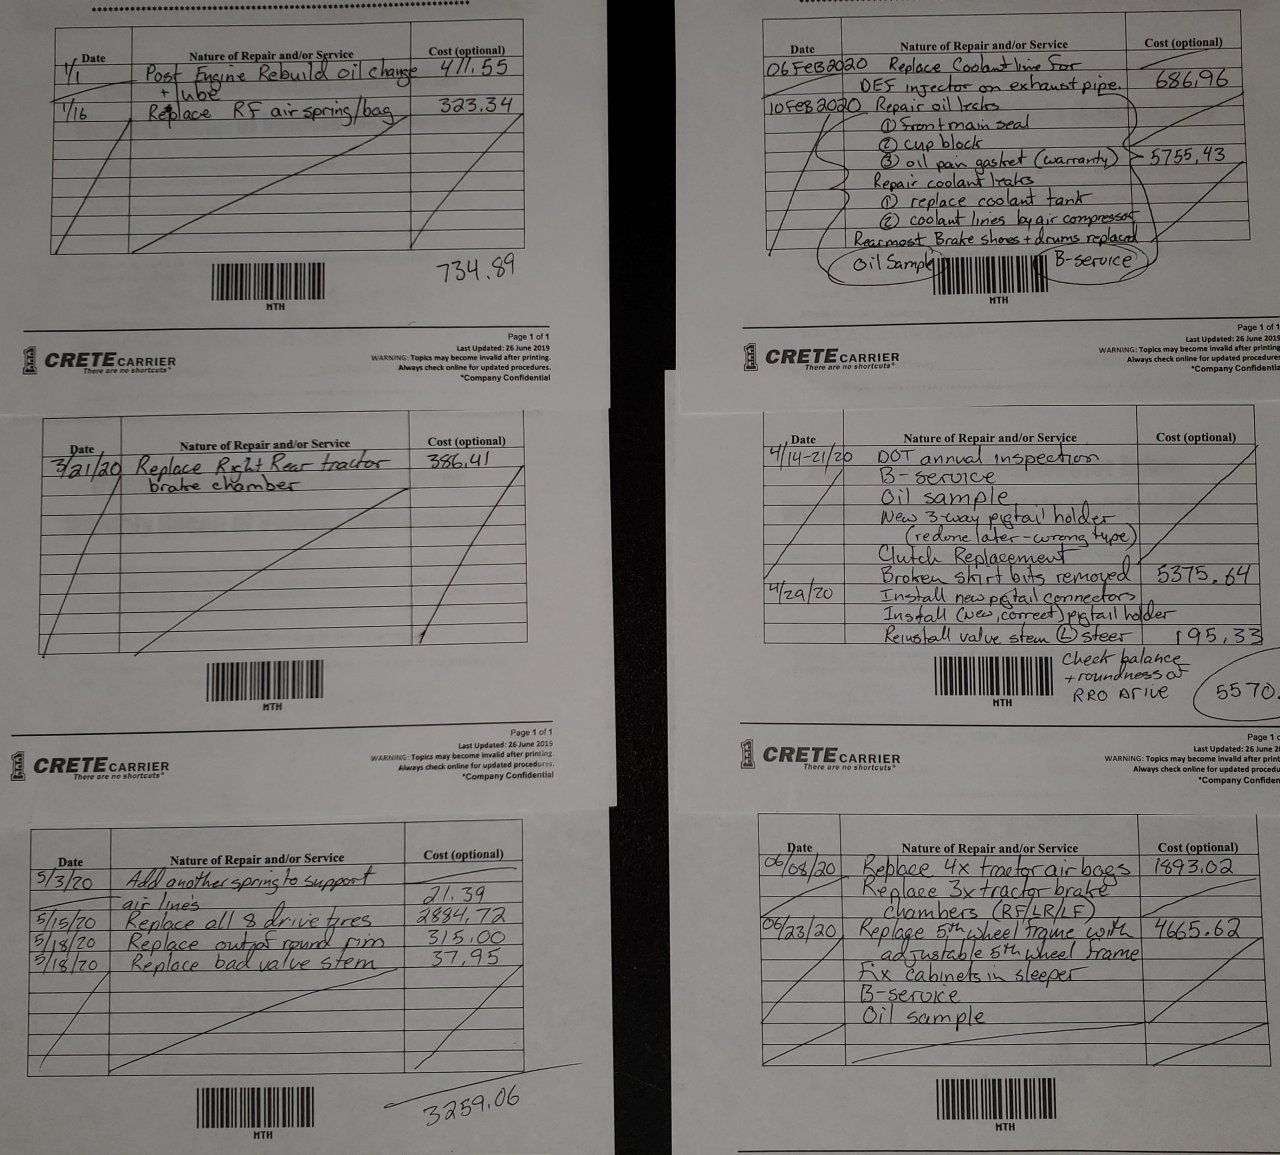 Date Nature of Repair and/or Service Cost (optional)
1/1 Post Engine Rebuild oil change 411.55
+ lube
1/16 Replace RF air spring/bag 323.34
734.89
MTH
Page 1 of 1
Last Updated: 26 June 2019
WARNING: Topics may become invalid after printing.
Always check online for updated procedures.
*Company Confidential
CRETE CARRIER
There are no shortcuts*
Date Nature of Repair and/or Service Cost (optional)
06FEB2020 Replace Coolant line for
DEF injector on exhaust pipe. 686.96
10FEB2020 Repair oil leaks
① Front main seal
② cup block
③ oil pan gasket (warranty) 5755.43
Repair coolant leaks
① replace coolant tank
② coolant lines by air compressor
Rearmost Brake shoes + drums replaced
Oil Sample B-service
MTH
Page 1 of 1
Last Updated: 26 June 2019
WARNING: Topics may become invalid after printing.
Always check online for updated procedures
*Company Confidentia
CRETE CARRIER
There are no shortcuts*
Date Nature of Repair and/or Service Cost (optional)
3/21/20 Replace Right Rear tractor 386.41
brake chamber
MTH
Page 1 of 1
Last Updated: 26 June 2019
WARNING: Topics may become invalid after printing.
Always check online for updated procedures.
*Company Confidential
CRETE CARRIER
There are no shortcuts*
Date Nature of Repair and/or Service Cost (optional)
4/14-21/20 DOT annual inspection
B-service
Oil sample
New 3-way pigtail holder
(redone later - wrong type)
Clutch Replacement
Broken skirt bits removed 5375.64
4/29/20 Install new pigtail connectors
Install (new, correct) pigtail holder
Reinstall valve stem Ⓛ steer 195.33
Check balance
+ roundness of
RRO Drive
5570.
MTH
Page 1 o
Last Updated: 26 June 20
WARNING: Topics may become invalid after print
Always check online for updated procedu
*Company Confiden
CRETE CARRIER
There are no shortcuts*
Date Nature of Repair and/or Service Cost (optional)
5/3/20 Add another spring to support
air lines 21.39
5/15/20 Replace all 8 drive tires 2884.72
5/18/20 Replace out of round rim 315.00
5/18/20 Replace bad valve stem 37.95
3259.06
MTH
Date Nature of Repair and/or Service Cost (optional)
06/08/20 Replace 4x tractor air bags 1893.02
Replace 3x tractor brake
chambers (RF/LR/LF)
06/23/20 Replace 5th wheel frame with 4665.62
adjustable 5th wheel frame
Fix cabinets in sleeper
B-service
Oil sample
MTH